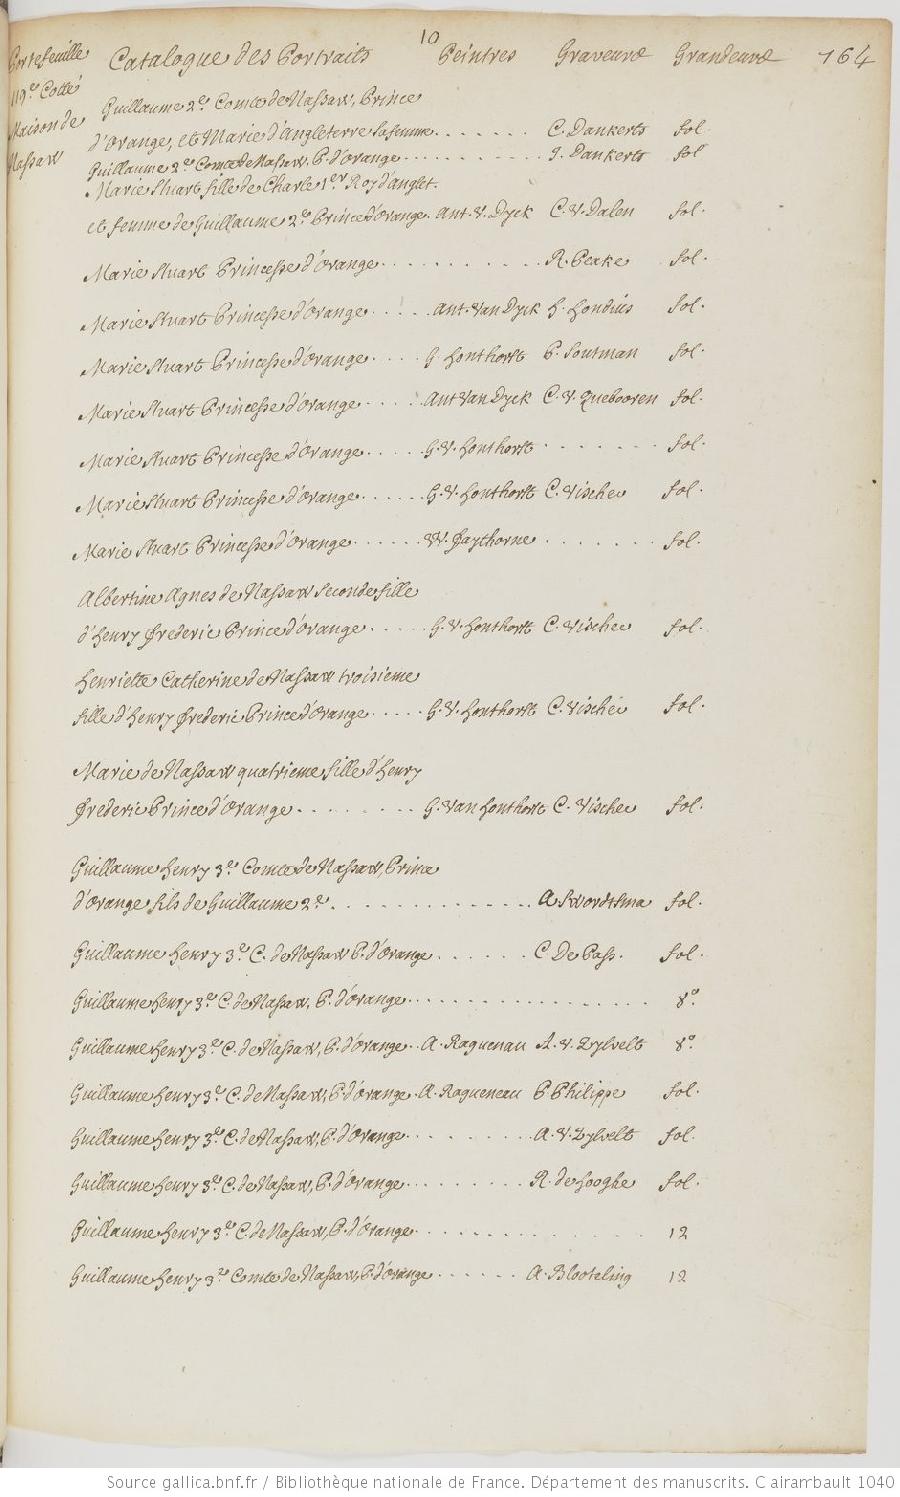 10
Portefeuille Catalogue des Portraits Peintres Graveurs Grandeurs 164
119e Cotté
Maison de
Nassaw
Guillaume 2e. Comte de Nassaw, Prince
d'Orange, et Marie d'Angleterre sa femme....... C. Dankerts fol.
Guillaume 2e. Comte de Nassaw, P. d'orange........... J. Dankerts fol
Marie Stuart fille de Charle 1er. Roy d'anglet.
et femme de Guillaume 2e. Prince d'Orange. Ant. V. Dyck C. V. Dalen fol.
Marie Stuart Princesse d'orange........... R. Peake fol.
Marie Stuart Princesse d'orange..... Ant. Van Dyck h. hondius fol.
Marie Stuart Princesse d'orange..... G honthorst P. Soutman fol.
Marie Stuart Princesse d'orange..... Ant Van Dyck C. V. Quebooren fol.
Marie Stuart Princesse d'orange..... G. V. honthorst ....... fol.
Marie Stuart Princesse d'orange...... G. V. honthorst C. Vischer fol.
Marie Stuart Princesse d'orange...... W. faythorne ....... fol.
Albertine Agnes de Nassaw seconde fille
d'henry frederic Prince d'orange..... G. V. honthorst C. Vischer fol.
henriette Catherine de Nassaw troisieme
fille d'henry frederic Prince d'orange..... G. V. honthorst C. Vischer fol.
Marie de Nassaw quatrieme fille d'henry
frederic Prince d'orange......... G. Van honthorst C. Vischer fol.
Guillaume henry 3e. Comte de Nassaw, Prince
d'orange fils de Guillaume 2e............... A Swordtma fol.
Guillaume henry 3e. C. de Nassaw P. d'orange....... C. De Pass. fol.
Guillaume henry 3e. C. de Nassaw, P. d'orange.................. 8o.
Guillaume henry 3e. C. de Nassaw, P. d'orange.. A. Raguenau A. V. Zylvelt 8o.
Guillaume henry 3e. C. de Nassaw, P. d'orange. A. Ragueneau P Philippe fol.
Guillaume henry 3e. C. de Nassaw, P. d'orange......... A. V. Zylvelt fol.
Guillaume henry 3e. C. de Nassaw, P. d'orange......... R. de hooghe fol.
Guillaume henry 3e. C. de Nassaw, P. d'orange................. 12
Guillaume henry 3e. Comte de Nassaw, P. d'orange...... A. Bloteling 12
Source gallica.bnf.fr / Bibliothèque nationale de France. Département des manuscrits. Clairambault 1040